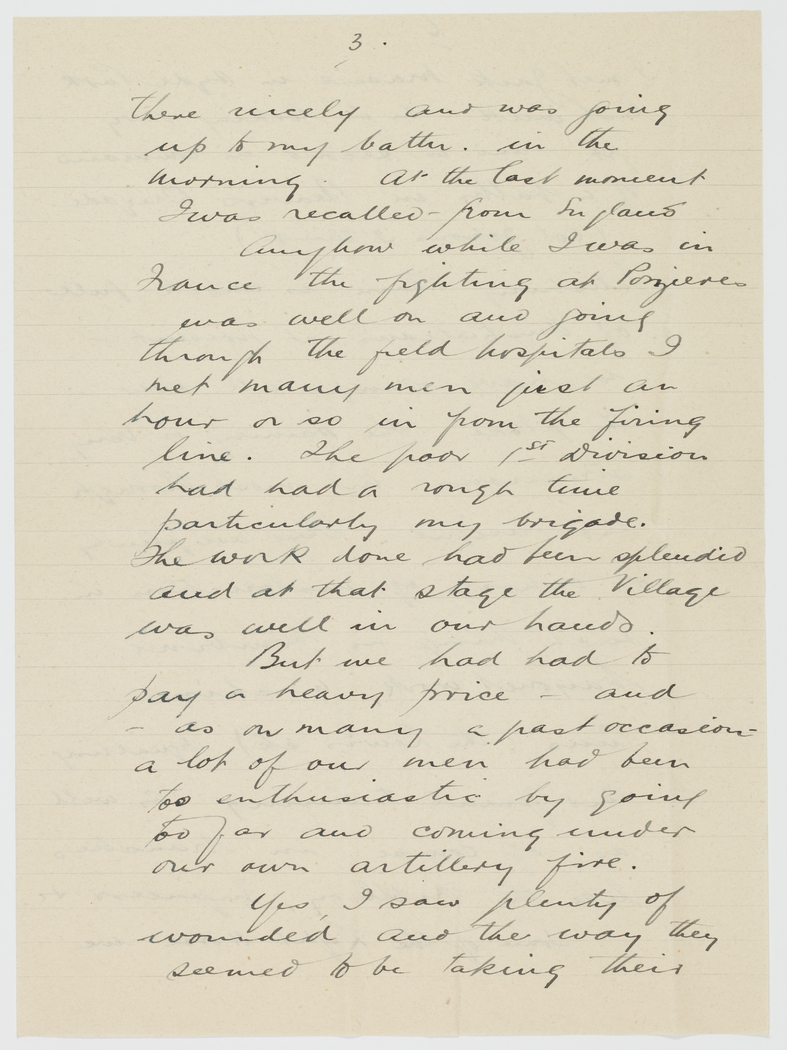 3.
there nicely and was going
up to my battn. in the
morning. At the last moment
I was recalled - from England
Anyhow while I was in
France the fighting at Pozieres
was well on and going
through the field hospitals I
met many men just an
hour or so in from the firing
line. The poor 1st Division
had had a rough time
particularly my brigade.
The work done had been splendid
and at that stage the Village
was well in our hands.
But we had had to
pay a heavy price - and
- as on many a past occasion -
a lot of our men had been
too enthusiastic by going
too far and coming under
our own artillery fire.
Yes, I saw plenty of
wounded and the way they
seemed to be taking their